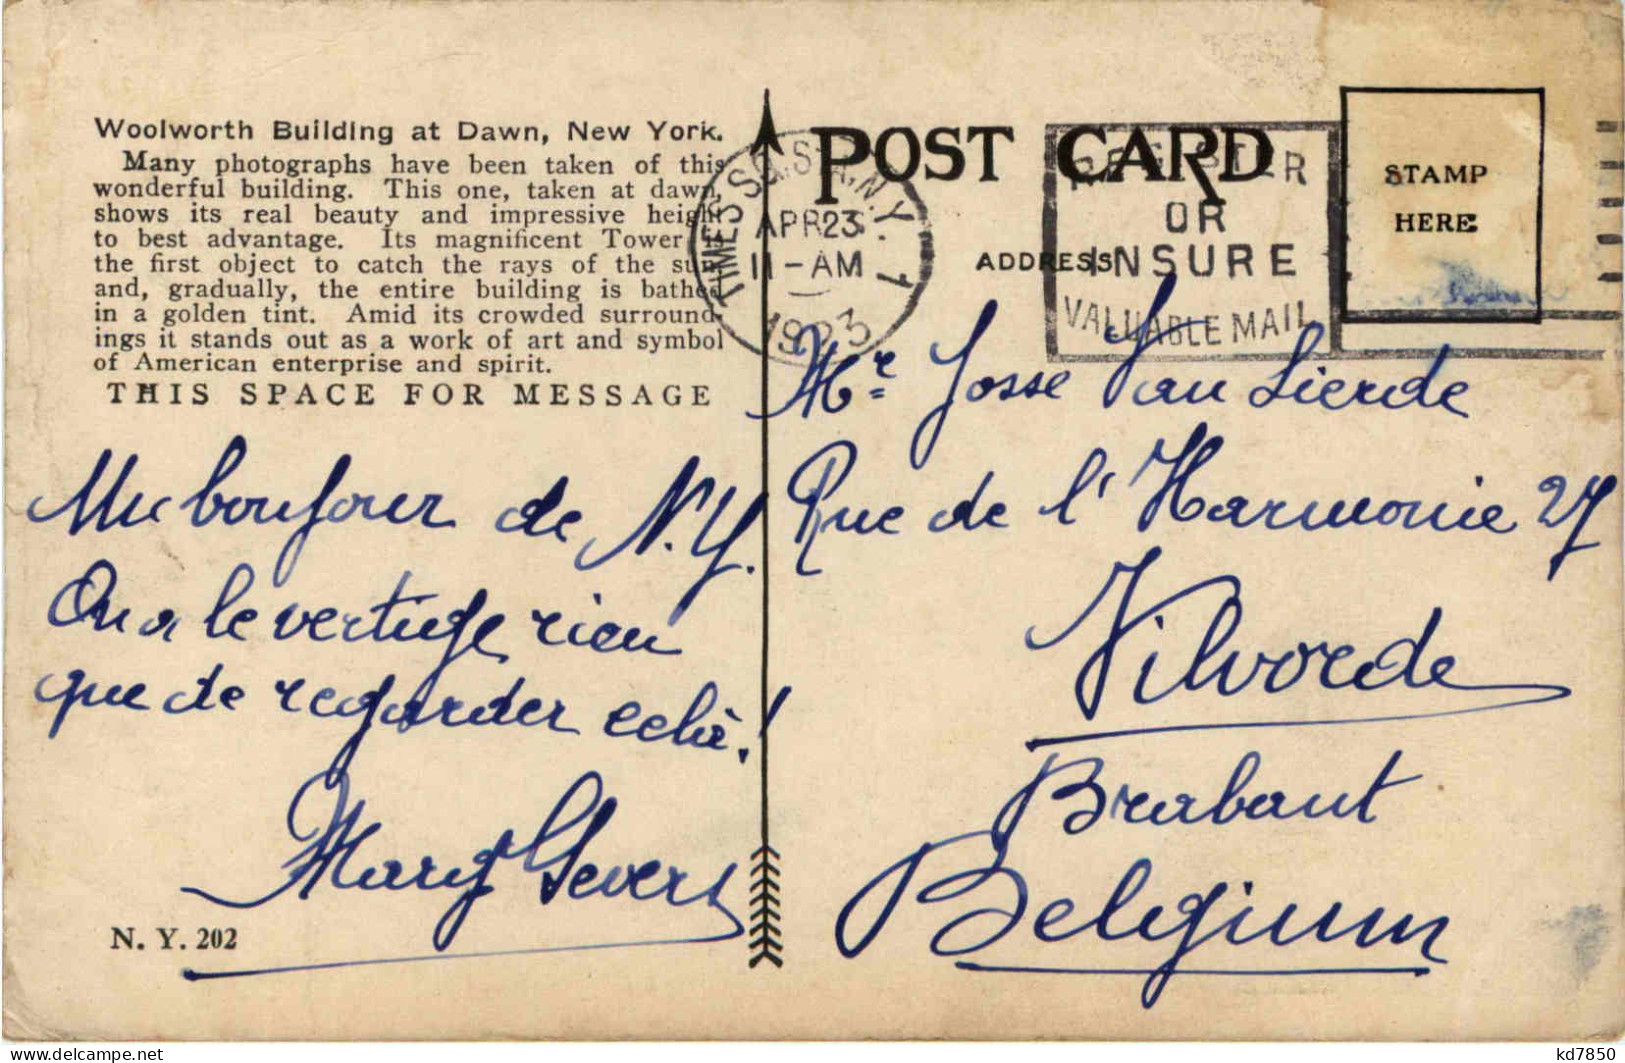 Woolworth Building at Dawn, New York.
Many photographs have been taken of this
wonderful building. This one, taken at dawn,
shows its real beauty and impressive height
to best advantage. Its magnificent Tower is
the first object to catch the rays of the sun
and, gradually, the entire building is bathed
in a golden tint. Amid its crowded surround-
ings it stands out as a work of art and symbol
of American enterprise and spirit.
THIS SPACE FOR MESSAGE
Un bonjour de N.Y.
On a le vertige rien
que de regarder celà!
Mary Gevers
N. Y. 202
TIMES SQ. STA. N.Y. 1
APR 23
11-AM
1923
POST CARD
REGISTER
OR
INSURE
VALUABLE MAIL
STAMP
HERE
ADDRESS
Mr Josse Van Lierde
Rue de l'Harmonie 27
Vilvorde
Brabant
Belgium
kd7850
delcampe.net